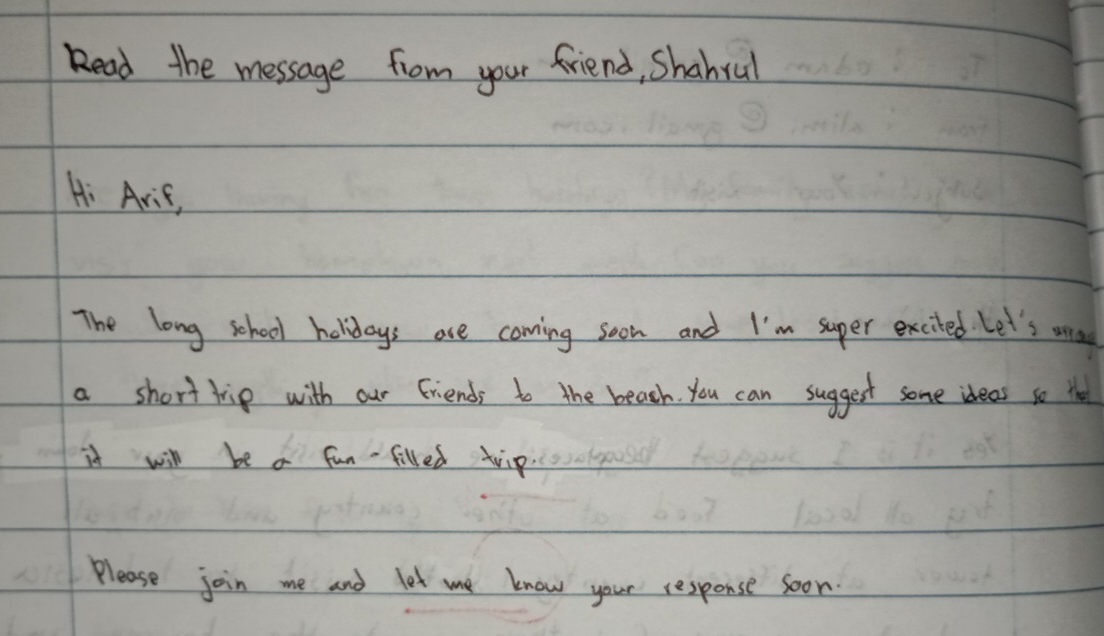 Read the message from your friend, Shahrul
Hi Arif,
The long school holidays are coming soon and I'm super excited. Let's
a short trip with our friends to the beach. You can suggest some ideas so that
it will be a fun-filled trip.
Please join me and let me know your response soon.